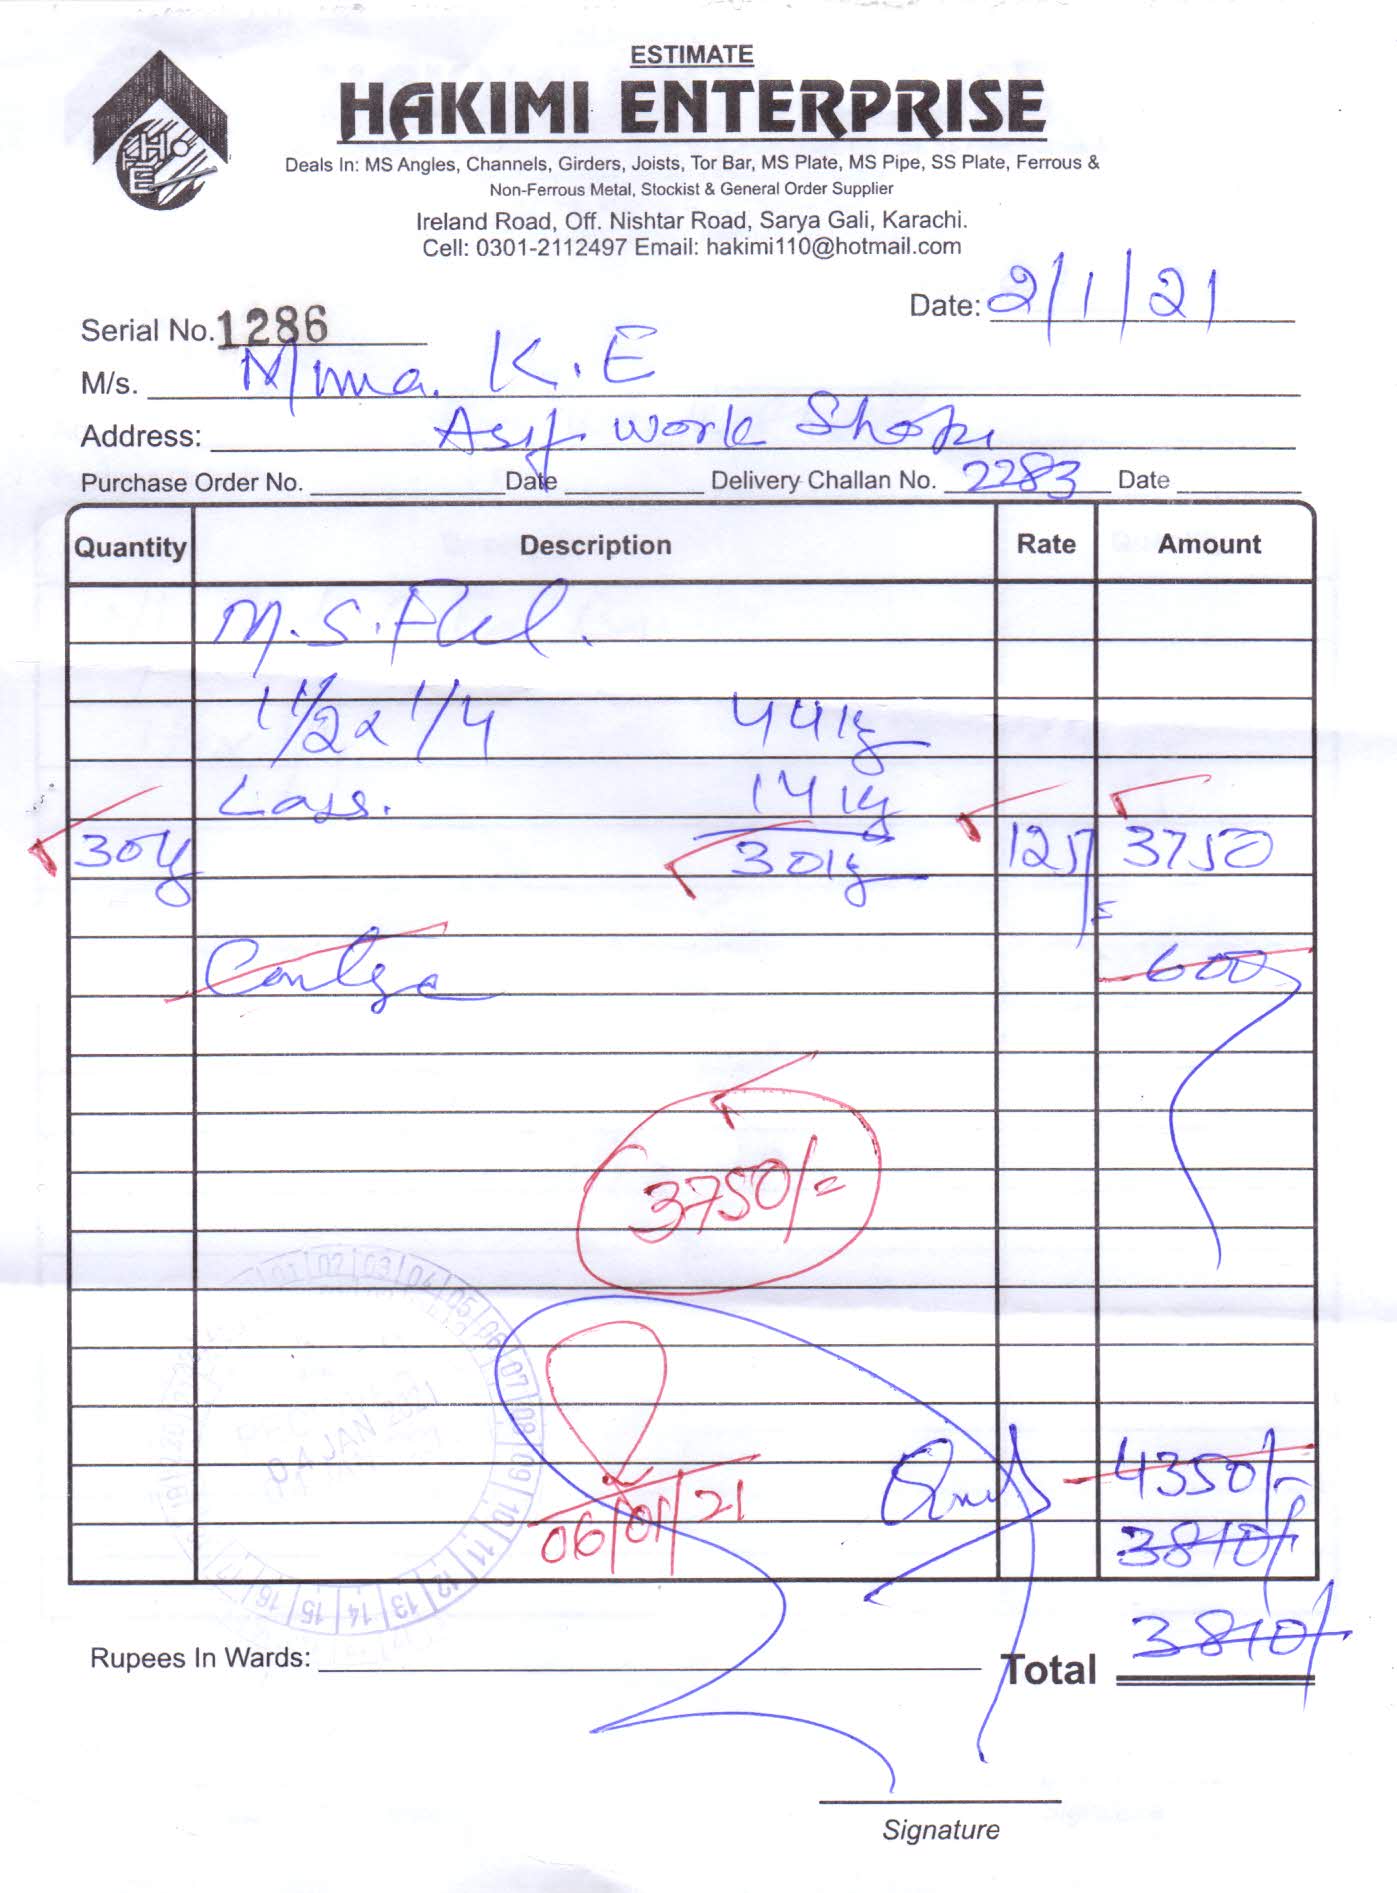 ESTIMATE
HAKIMI ENTERPRISE
HE
Deals In: MS Angles, Channels, Girders, Joists, Tor Bar, MS Plate, MS Pipe, SS Plate, Ferrous &
Non-Ferrous Metal, Stockist & General Order Supplier
Ireland Road, Off. Nishtar Road, Sarya Gali, Karachi.
Cell: 0301-2112497 Email: hakimi110@hotmail.com
Date: 2/1/21
Serial No. 1286
M/s. K.E
Address: Asif Work Shop
Purchase Order No. Date Delivery Challan No. 2283 Date
Quantity Description Rate Amount
M.S.
1 1/2 x 1/4 44kg
Lass. 14kg
30kg 30kg 125/= 3750
600
3750/=
04 JAN 2021
4350/-
06/01/21 3810/-
Rupees In Wards: Total 3810/
Signature